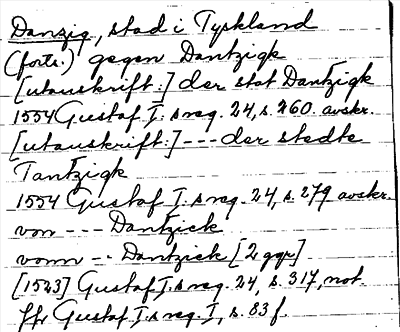 Danzig, stad i Tyskland
(forts.) gegen Dantzigk
[utanskrift:] der stat Dantzigk
1554 Gustaf I:s reg. 24, s. 260. avskr.
[utanskrift:] --- der stedte
Tantzigk
1554 Gustaf I:s reg. 24, s. 279 avskr.
von --- Dantzick
vonn -- Dantzick [2 ggr]
[1523] Gustaf I:s reg. 24, s. 317, not.
jfr Gustaf I:s reg. I, s. 83 f.